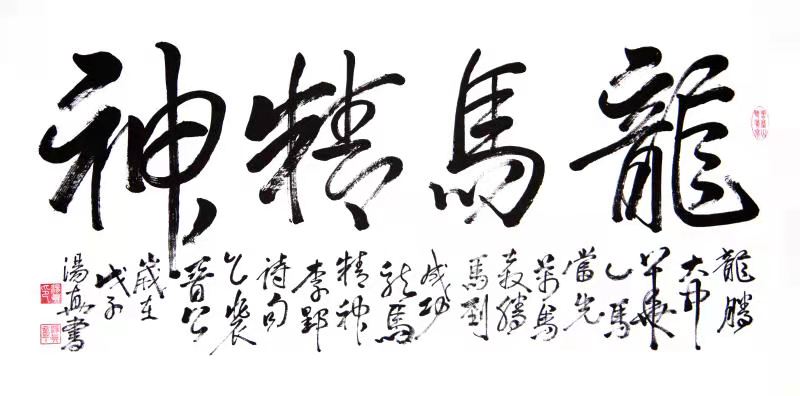 龍馬精神
龍騰
馬
當先
萬馬
奔騰
馬到
成功
龍馬
精神
李郢
詩句
裴
晉公
歲在
戊子
湯 書